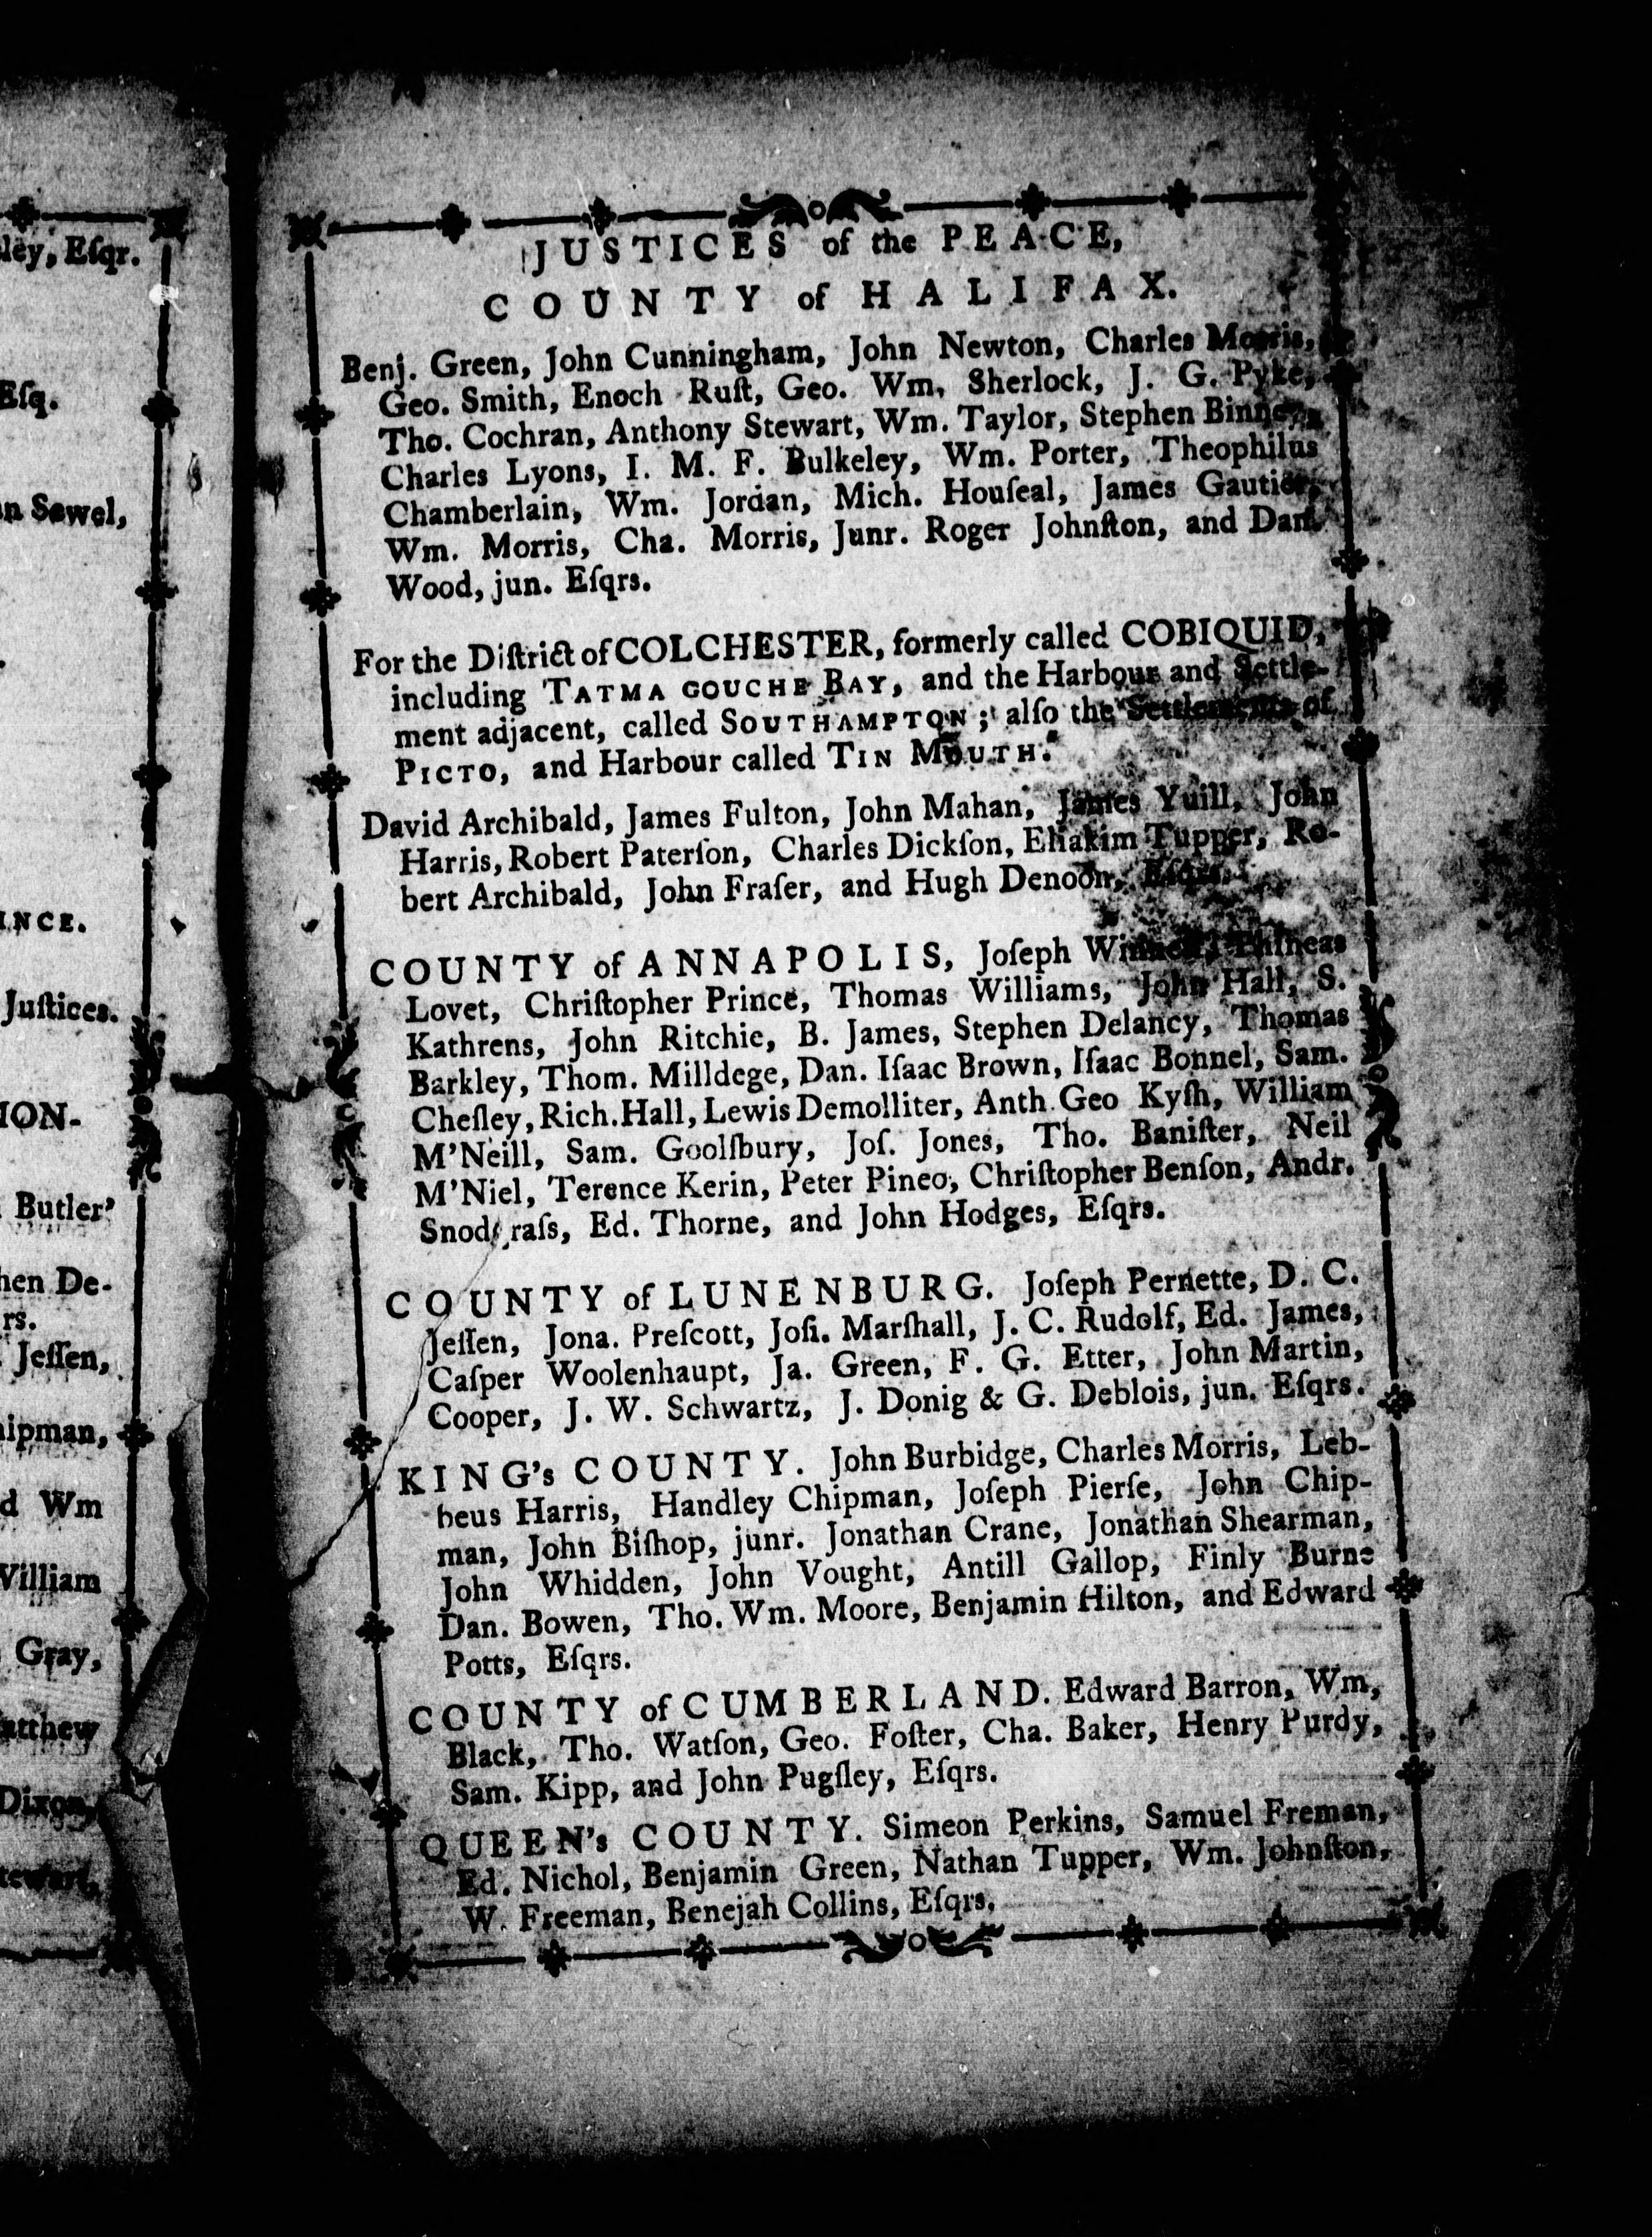 ley, Eſqr.
Eſq.
n Sewel,
INCE.
Juſtices.
ION-
Butler'
hen De-
rs.
Jeſſen,
ipman,
d Wm
William
Gray,
atthew
Dixon,
tewart,
JUSTICES of the PEACE,
COUNTY of HALIFAX.
Benj. Green, John Cunningham, John Newton, Charles Morris,
Geo. Smith, Enoch Ruſt, Geo. Wm. Sherlock, J. G. Pyke,
Tho. Cochran, Anthony Stewart, Wm. Taylor, Stephen
Charles Lyons, I. M. F. Bulkeley, Wm. Porter, Theophilus
Chamberlain, Wm. Jordan, Mich. Houſeal, James Gautier,
Wm. Morris, Cha. Morris, Junr. Roger Johnſton, and Dan.
Wood, jun. Eſqrs.
For the Diſtrict of COLCHESTER, formerly called COBIQUID,
including TATMA GOUCHE BAY, and the Harbour and Settle-
ment adjacent, called SOUTHAMPTON; alſo the Settlements of
PICTO, and Harbour called TIN MOUTH.
David Archibald, James Fulton, John Mahan, James Yuill, John
Harris, Robert Paterſon, Charles Dickſon, Eliakim Tupper, Ro-
bert Archibald, John Fraſer, and Hugh Denoon, Eſqrs.
COUNTY of ANNAPOLIS, Joſeph Phineas
Lovet, Chriſtopher Prince, Thomas Williams, John Hall, S.
Kathrens, John Ritchie, B. James, Stephen Delancy, Thomas
Barkley, Thom. Milldege, Dan. Iſaac Brown, Iſaac Bonnel, Sam.
Cheſley, Rich. Hall, Lewis Demolliter, Anth. Geo Kyſh, William
M'Neill, Sam. Goolſbury, Joſ. Jones, Tho. Baniſter, Neil
M'Niel, Terence Kerin, Peter Pineo, Chriſtopher Benſon, Andr.
Snodgraſs, Ed. Thorne, and John Hodges, Eſqrs.
COUNTY of LUNENBURG. Joſeph Pernette, D. C.
Jeſſen, Jona. Preſcott, Joſi. Marſhall, J. C. Rudolf, Ed. James,
Caſper Woolenhaupt, Ja. Green, F. G. Etter, John Martin,
Cooper, J. W. Schwartz, J. Donig & G. Deblois, jun. Eſqrs.
KING's COUNTY. John Burbidge, Charles Morris, Leb-
beus Harris, Handley Chipman, Joſeph Pierſe, John Chip-
man, John Biſhop, junr. Jonathan Crane, Jonathan Shearman,
John Whidden, John Vought, Antill Gallop, Finly Burne
Dan. Bowen, Tho. Wm. Moore, Benjamin Hilton, and Edward
Potts, Eſqrs.
COUNTY of CUMBERLAND. Edward Barron, Wm,
Black, Tho. Watſon, Geo. Foſter, Cha. Baker, Henry Purdy,
Sam. Kipp, and John Pugſley, Eſqrs.
QUEEN's COUNTY. Simeon Perkins, Samuel Freman,
Ed. Nichol, Benjamin Green, Nathan Tupper, Wm. Johnſton,
W. Freeman, Benejah Collins, Eſqrs.